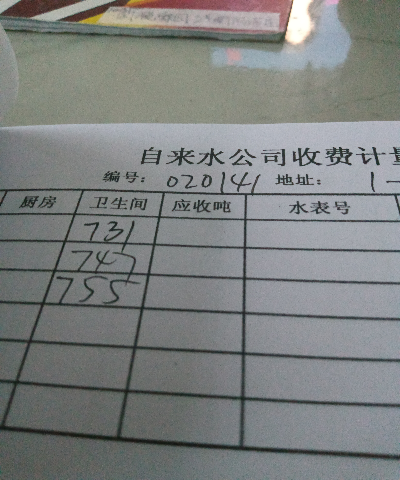 自来水公司收费计量
编号: 020141 地址: 1-
厨房 卫生间 应收吨 水表号
731
747
755